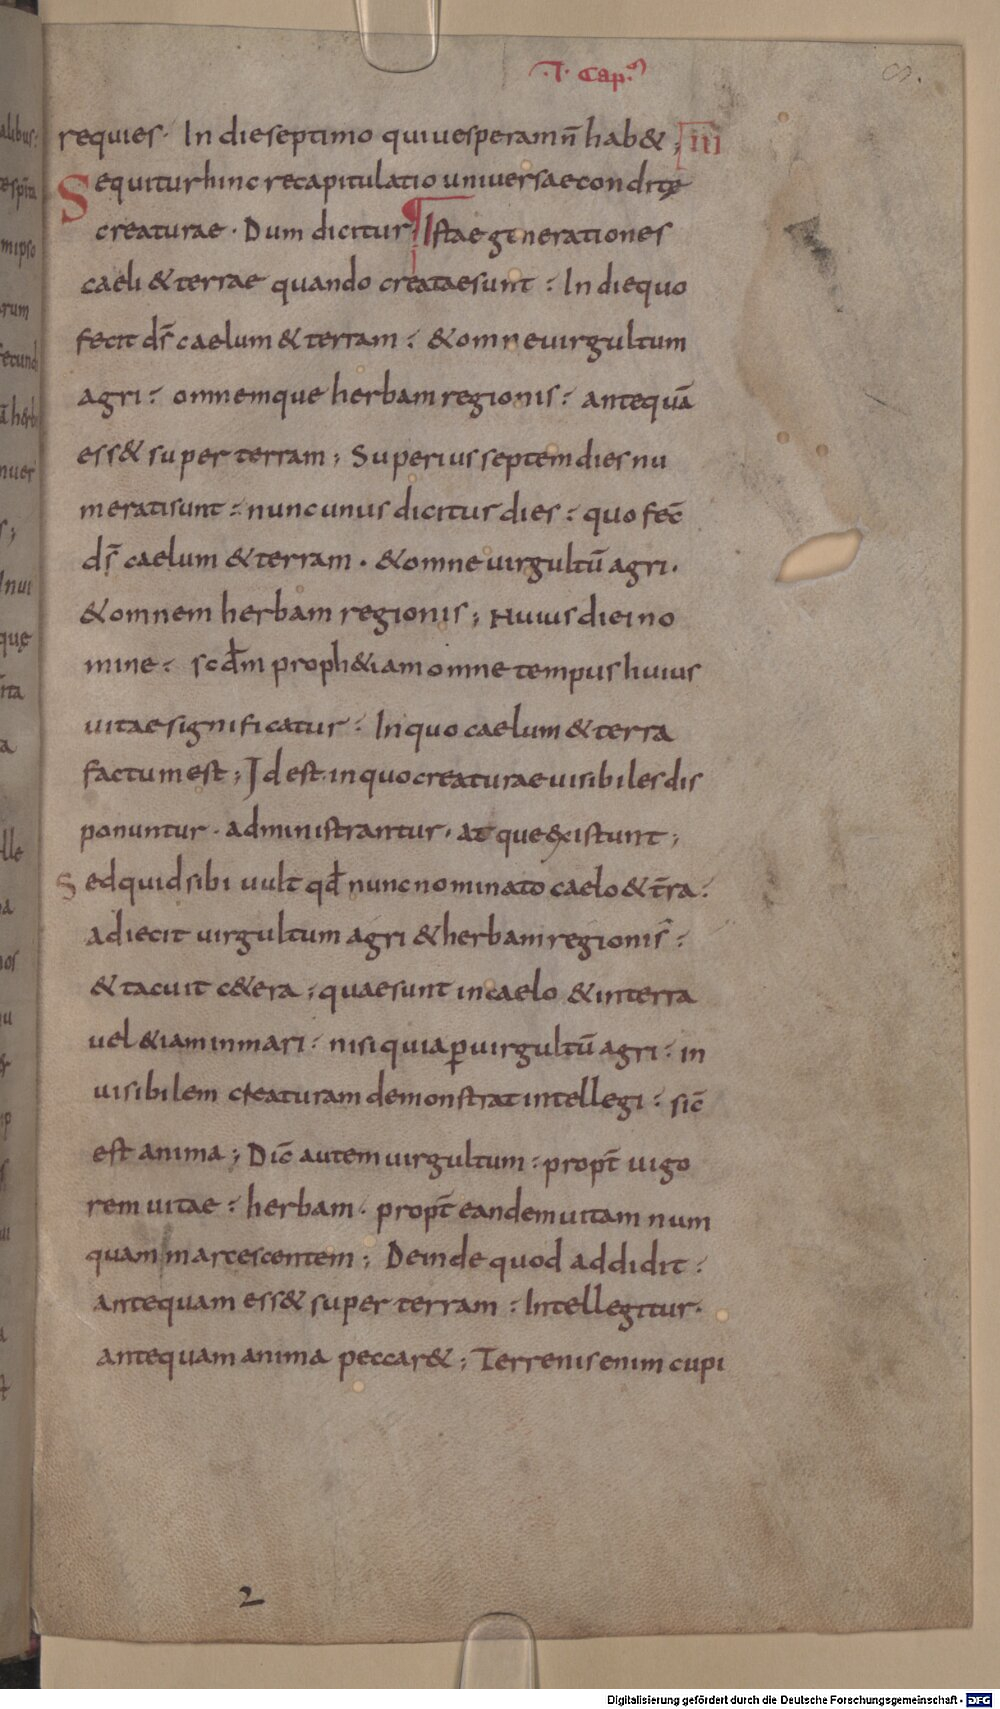 ·I· Cap.
requies· In die septimo qui uesperam n̄ hab& ; iii
Sequitur hinc recapitulatio universae conditę
creaturae · Dum dicitur Istae generationes
caeli & terrae quando creatae sunt : In die quo
fecit d̄s caelum & terram : & omne uirgultum
agri : omnemque herbam regionis : antequā
ess& super terram ; Superius septem dies nu
merati sunt : nunc unus dicitus dies : quo fec̄
d̄s caelum & terram . & omne uirgultū agri .
& omnem herbam regionis ; Huius diei no
mine : scd̄m proph&iam omne tempus huius
uitae significatur : In quo caelum & terra
factum est ; Id est in quo creaturae uisibiles dis
ponuntur . administrantur . atque existunt ;
Sed quid sibi uult qd̄ nunc nominato caelo & t̄ra :
adiecit uirgultum agri & herbam regionis :
& tacuit c&era ; quae sunt in caelo & in terra
uel &iam in mari : nisi quia ꝑ uirgultū agri : in
uisibilem creaturam demonstrat intellegi : sic̄
est anima ; Dic̄ autem uirgultum : propt̄ uigo
rem uitae : herbam . propt̄ eandem uitam num
quam marcescentem ; Deinde quod addidit :
antequam ess& super terram : Intellegitur .
antequam anima peccar& ; Terrenis enim cupi
2
Digitalisierung gefördert durch die Deutsche Forschungsgemeinschaft - DFG